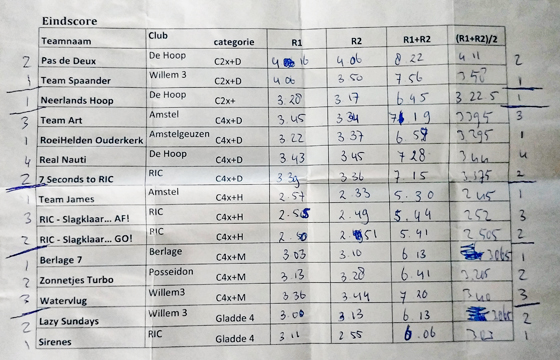 Eindscore
Teamnaam Club categorie R1 R2 R1+R2 (R1+R2)/2
2 Pas de Deux De Hoop C2x+D 4 16 4 06 8 22 4 11 2
1 Team Spaander Willem 3 C2x+D 4 06 3 50 7 56 3 58 1
1 Neerlands Hoop De Hoop C2x+ 3.28 3 17 6 45 3 22 5 1
3 Team Art Amstel C4x+D 3.45 3 34 7 19 3 395 3
1 RoeiHelden Ouderkerk Amstelgeuzen C4x+D 3 22 3 37 6 59 3 295 1
4 Real Nauti De Hoop C4x+D 3 43 3 45 7 28 3 44 4
2 7 Seconds to RIC RIC C4x+D 3 39 3 36 7 15 3 375 2
1 Team James Amstel C4x+H 2.57 2.33 5.30 2 45 1
3 RIC - Slagklaar... AF! RIC C4x+H 2.55 2.49 5.44 252 3
2 RIC - Slagklaar... GO! RIC C4x+H 2.50 2 51 5.41 2 505 2
1 Berlage 7 Berlage C4x+M 3 03 3.10 6 13 3065 1
2 Zonnetjes Turbo Posseidon C4x+M 3.13 3 28 6.41 3.205 2
3 Watervlug Willem3 C4x+M 3 36 3.44 7 20 3 40 3
2 Lazy Sundays Willem 3 Gladde 4 3 00 3 13 6.13 3065 2
1 Sirenes RIC Gladde 4 3 11 2 55 6.06 303 1